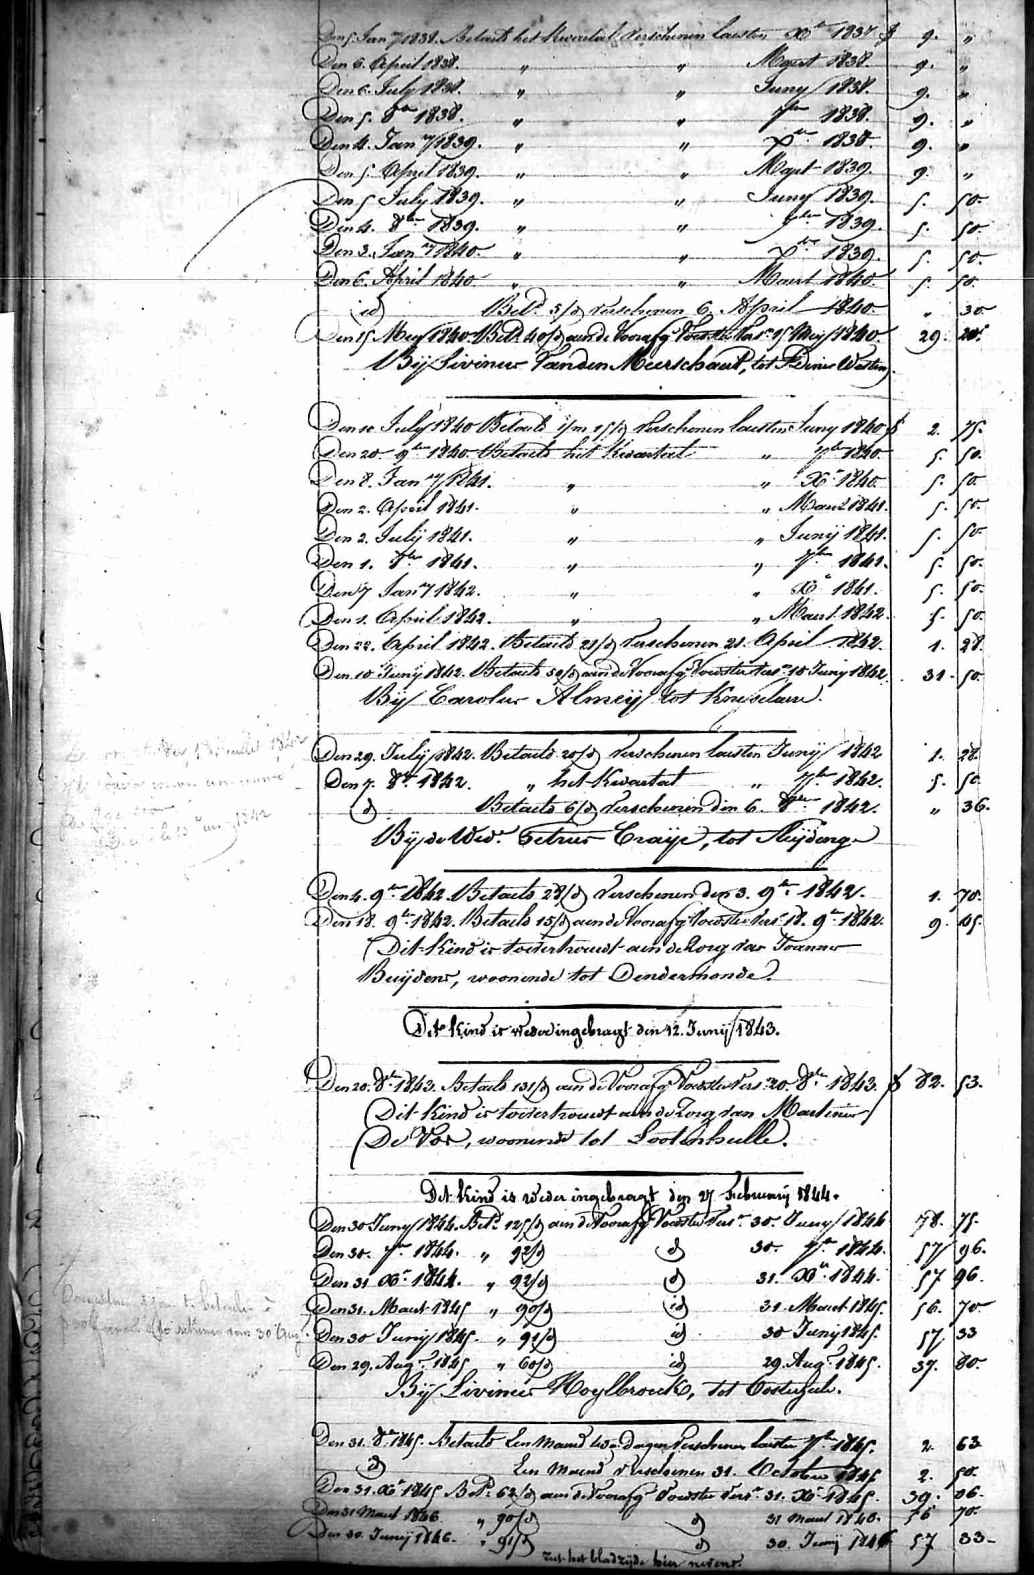 Den 5. Jan.ry 1838. Betaelt het Kwartael Verschenen laesten Xbr 1837 f 9. "
Den 6. April 1838. " " Maert 1838. 9. "
Den 6. July 1838. " " Juny 1838. 9. "
Den 5. 8ber 1838. " " 7ber 1838. 9. "
Den 4. Jan.ry 1839. " " Xber 1838. 9. "
Den 5. April 1839. " " Maert 1839. 9. "
Den 5 July 1839. " " Juny 1839. 5. 50.
Den 4. 8ber 1839. " " 7ber 1839. 5. 50.
Den 3. Jan.ry 1840. " " Xber 1839. 5. 50.
Den 6. April 1840. " " Maert 1840. 5. 50.
id Bet.d 5/d Verschenen 6. April 1840. " 30
Den 15 Mey 1840. Bet.d 40/d aen de Voorafg. Voedster Vers.n 15 Mey 1840. 29.
Bij Livinus Vanden Meerschaut, tot St Denis Westrem.
Den 10 July 1840 Betaelt 1/m 15/d Verschenen laesten Juny 1840 f 2. 75.
Den 20 9ber 1840. Betaelt het Kwartael " 7ber 1840 5. 50.
Den 8. Jan.ry 1841. " " Xr 1840 5. 50
Den 2. April 1841. " " Maert 1841. 5. 50.
Den 2. Julij 1841. " " Junij 1841. 5. 50.
Den 1. 8ber 1841. " " 7ber 1841. 5. 50.
Den 7 Jan.ry 1842. " " Xr 1841. 5. 50.
Den 1. April 1842. " " Maert 1842. 5. 50.
Den 22. April 1842. Betaeld 21/d Verschenen 21. April 1842. 1. 28.
Den 10 Junij 1842. Betaeld 50/d aen de Voorafg. Voedster Vers.n 10 Junij 1842. 31. 50.
Bij Carolus Almeij tot Knesselare.
Den 29. Julij 1842. Betaeld 20/d Verschenen laesten Junij 1842 1. 28.
Den 7. 8br 1842. " het Kwartael " 7br 1842. 5. 50
id Betaeld 6/d Verschenen den 6. 8ber 1842. " 36.
Bij de Wed.e Petrus Craije, tot Sleijdinge
Den 4. 9br 1842. Betaeld 28/d Verschenen den 3. 9br 1842. 1. 70.
Den 18. 9br 1842. Betaeld 15/d aen de Voorafg. Voedster Vers. 18. 9br 1842. 9. 45.
Dit Kind is toevertrouwt aen de Zorg van Joannes
Buijdens, woonende tot Dendermonde.
Dit Kind is wederingebragt den 12. Junij 1843.
Den 20. 8br 1843. Betaeld 131/d aen de Voorafg. Voedster Vers. 20. 8br 1843. f 82. 53.
Dit Kind is toevertrouwt aen de Zorg van Martinus
De Vos, woonende tot Lootenhulle.
Dit kind is weder ingebragt den 27 February 1844.
Den 30 Juny 1844. Bet.d 125/d aen de Voorafg. Voedster Vers.n 30. Juny 1844 78. 75.
Den 30. 7br 1844. " 92/d id 30. 7br 1844. 57 96.
Den 31 Xbr 1844. " 92/d id 31. Xbr 1844. 57 96.
Den 31. Maert 1845 " 90/d id 31. Maert 1845. 56. 70
Den 30 Junij 1845. " 91/d id 30 Junij 1845. 57. 33
Den 29. Aug.t 1845 " 60/d id 29. Aug.t 1845. 37. 80.
Bij Livinus Hoylbrouck, tot Oosterzeele.
Den 31. 8br 1845. Betaeld Een Maend twee dagen Verschenen laesten 7br 1845. 2. 63
id Een Maend Verschenen 31. October 1845 2. 50.
Den 31. Xr 1845 Bet.d 62/d aen de Voorafg. Voedster Vers.n 31. Xr 1845. 39. 06.
Den 31 Maert 1846. " 90/d id 31 Maert 1846. 56 70.
Den 30. Junij 1846. " 91/d id 30. Junij 1846 57 33-
ziet het bladzijde hier nevens.